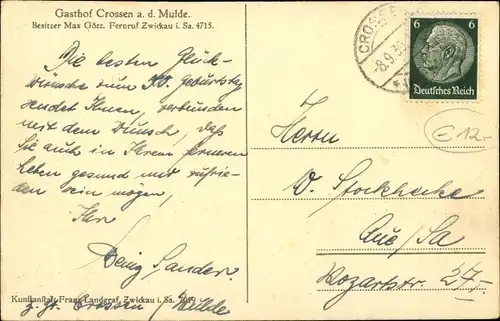 Gasthof Crossen a. d. Mulde.
Besitzer Max Götz. Fernruf Zwickau i. Sa. 4715.
Die besten Glück-
wünsche zum 50. Geburtstag
sendet Ihnen, verbunden
mit dem Wunsch, daß
Sie auch in Ihrem ferneren
Leben gesund und zufrie-
den sein mögen,
Ihr
Heinz Sander.
Kunstanstalt Franz Landgraf, Zwickau i. Sa.
z. Zt. Crossen / Mulde
CROSSE
-8.9.3
6 6
Deutsches Reich
€12,-
Herrn
W. Stockheke
Aue/Sa
Mozartstr. 27.